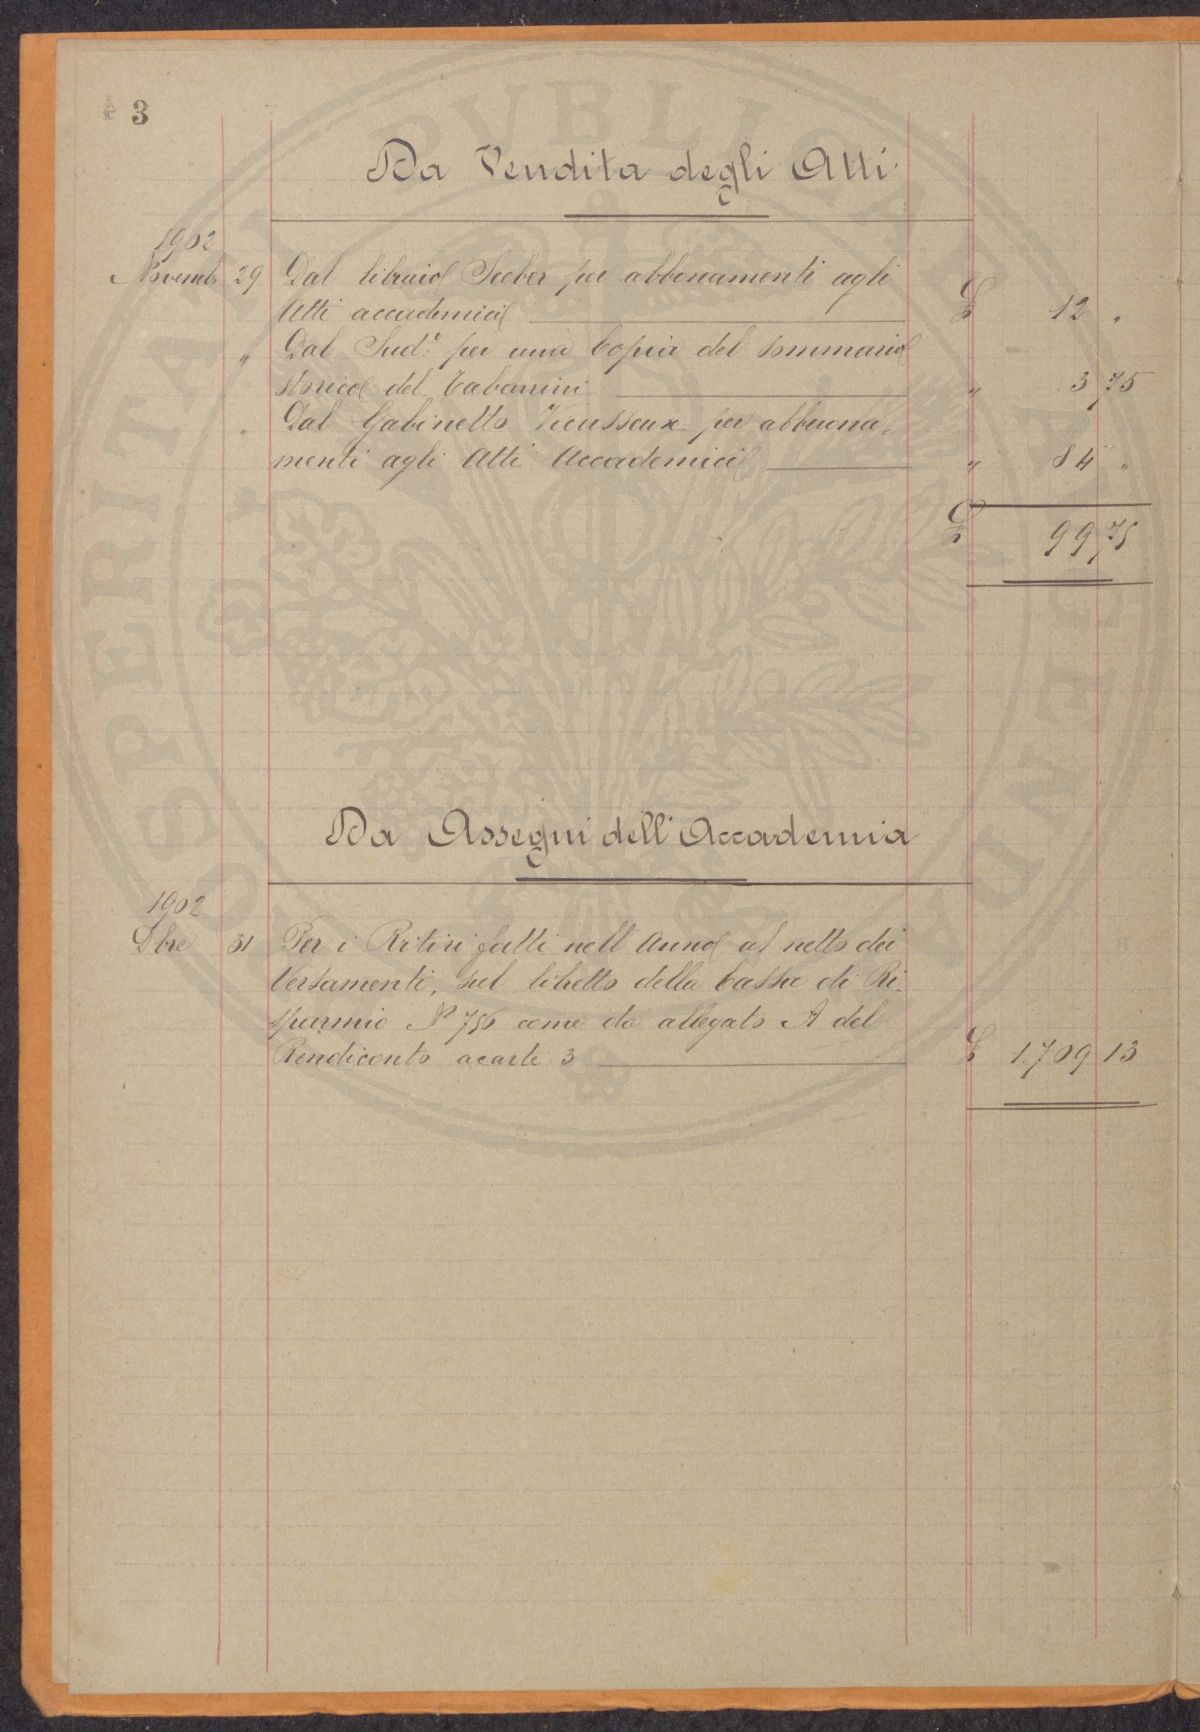 3
Da Vendita degli Atti
1902
Novemb. 29 Dal libraio Seeber per abbonamenti agli
Atti accademici £ 12 "
" Dal Sud.º per una Copia del sommario
storico del Tabarrini " 3 75
" Dal Gabinetto Vieusseux per abbuona-
menti agli Atti Accademici " 84 "
£ 99 75
Da Assegni dell'Accademia
1902
Xbre 31 Per i Ritiri fatti nell'Anno al netto dei
Versamenti, sul libretto della Cassa di Ri-
sparmio Nº 756 come da allegato A del
Rendiconto a carte 3 £ 1.709 13
PROSPERITATI PUBLICAE AUGENDAE